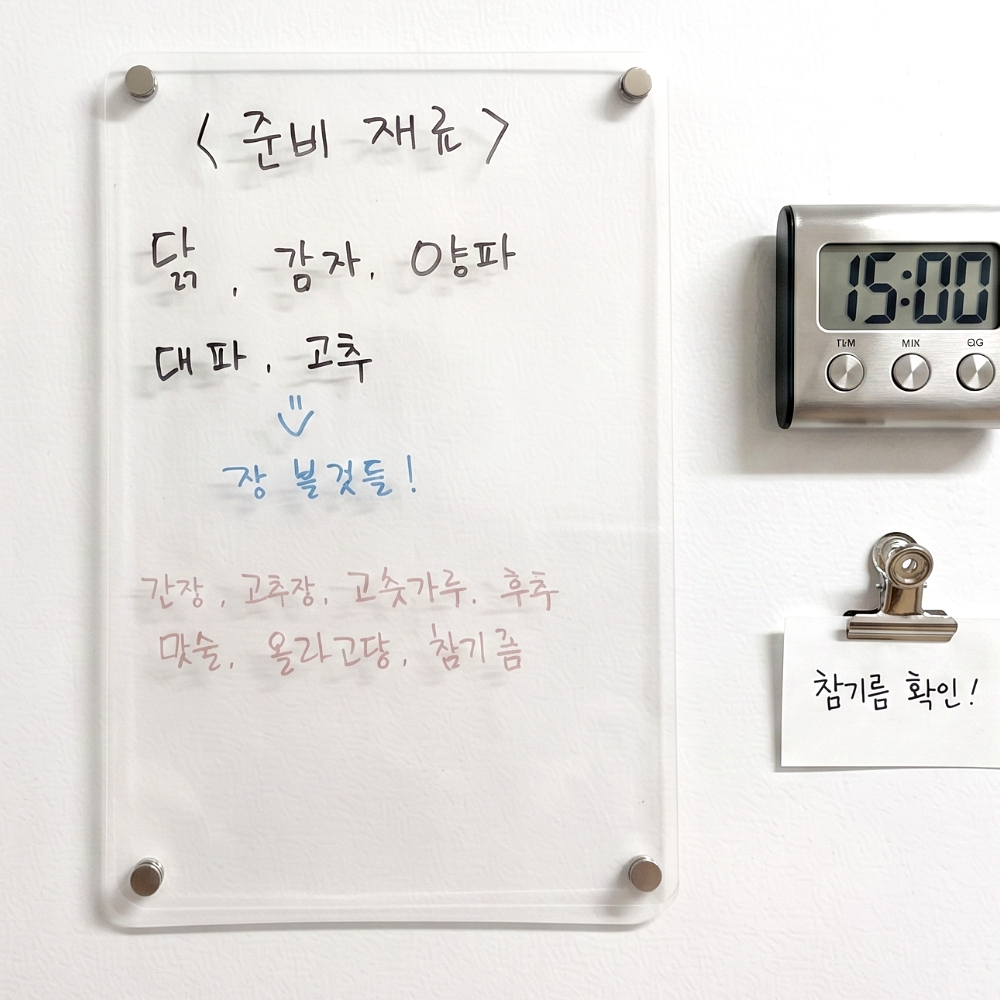 <준비 재료>
닭, 감자, 양파
대파, 고추
장 볼것들!
간장, 고추장, 고춧가루, 후추
맛술, 올라고당, 참기름
15:00
MIX
참기름 확인!